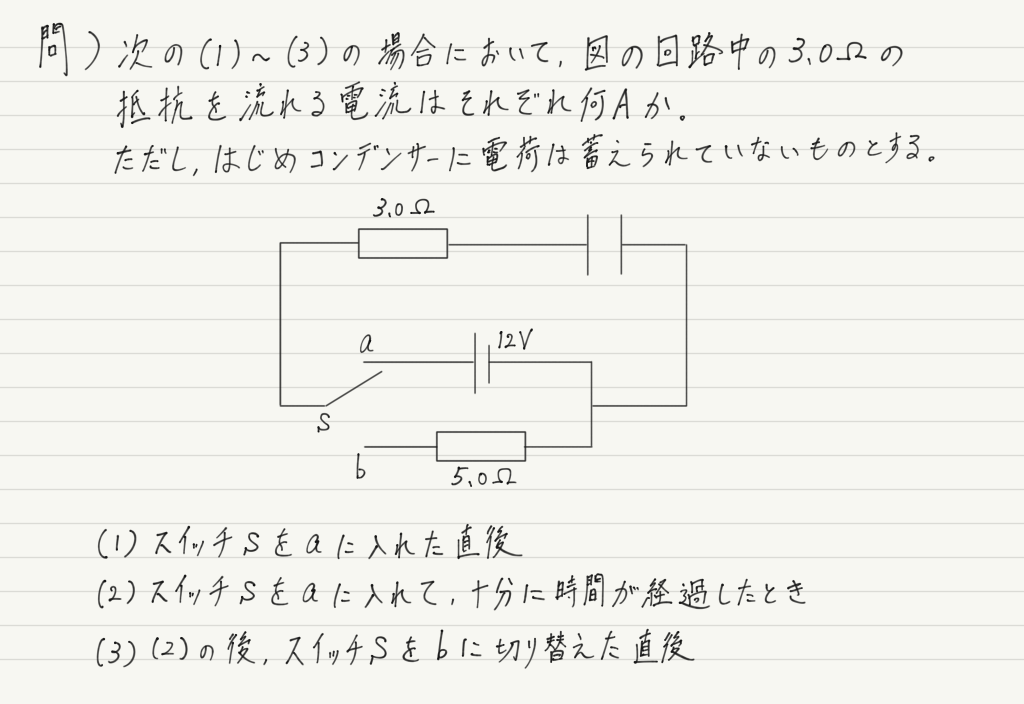 問)次の(1)~(3)の場合において,図の回路中の3.0Ωの
抵抗を流れる電流はそれぞれ何Aか。
ただし,はじめコンデンサーに電荷は蓄えられていないものとする。
3.0Ω
a
12V
S
b
5.0Ω
(1)スイッチSをaに入れた直後
(2)スイッチSをaに入れて,十分に時間が経過したとき
(3)(2)の後,スイッチSをbに切り替えた直後